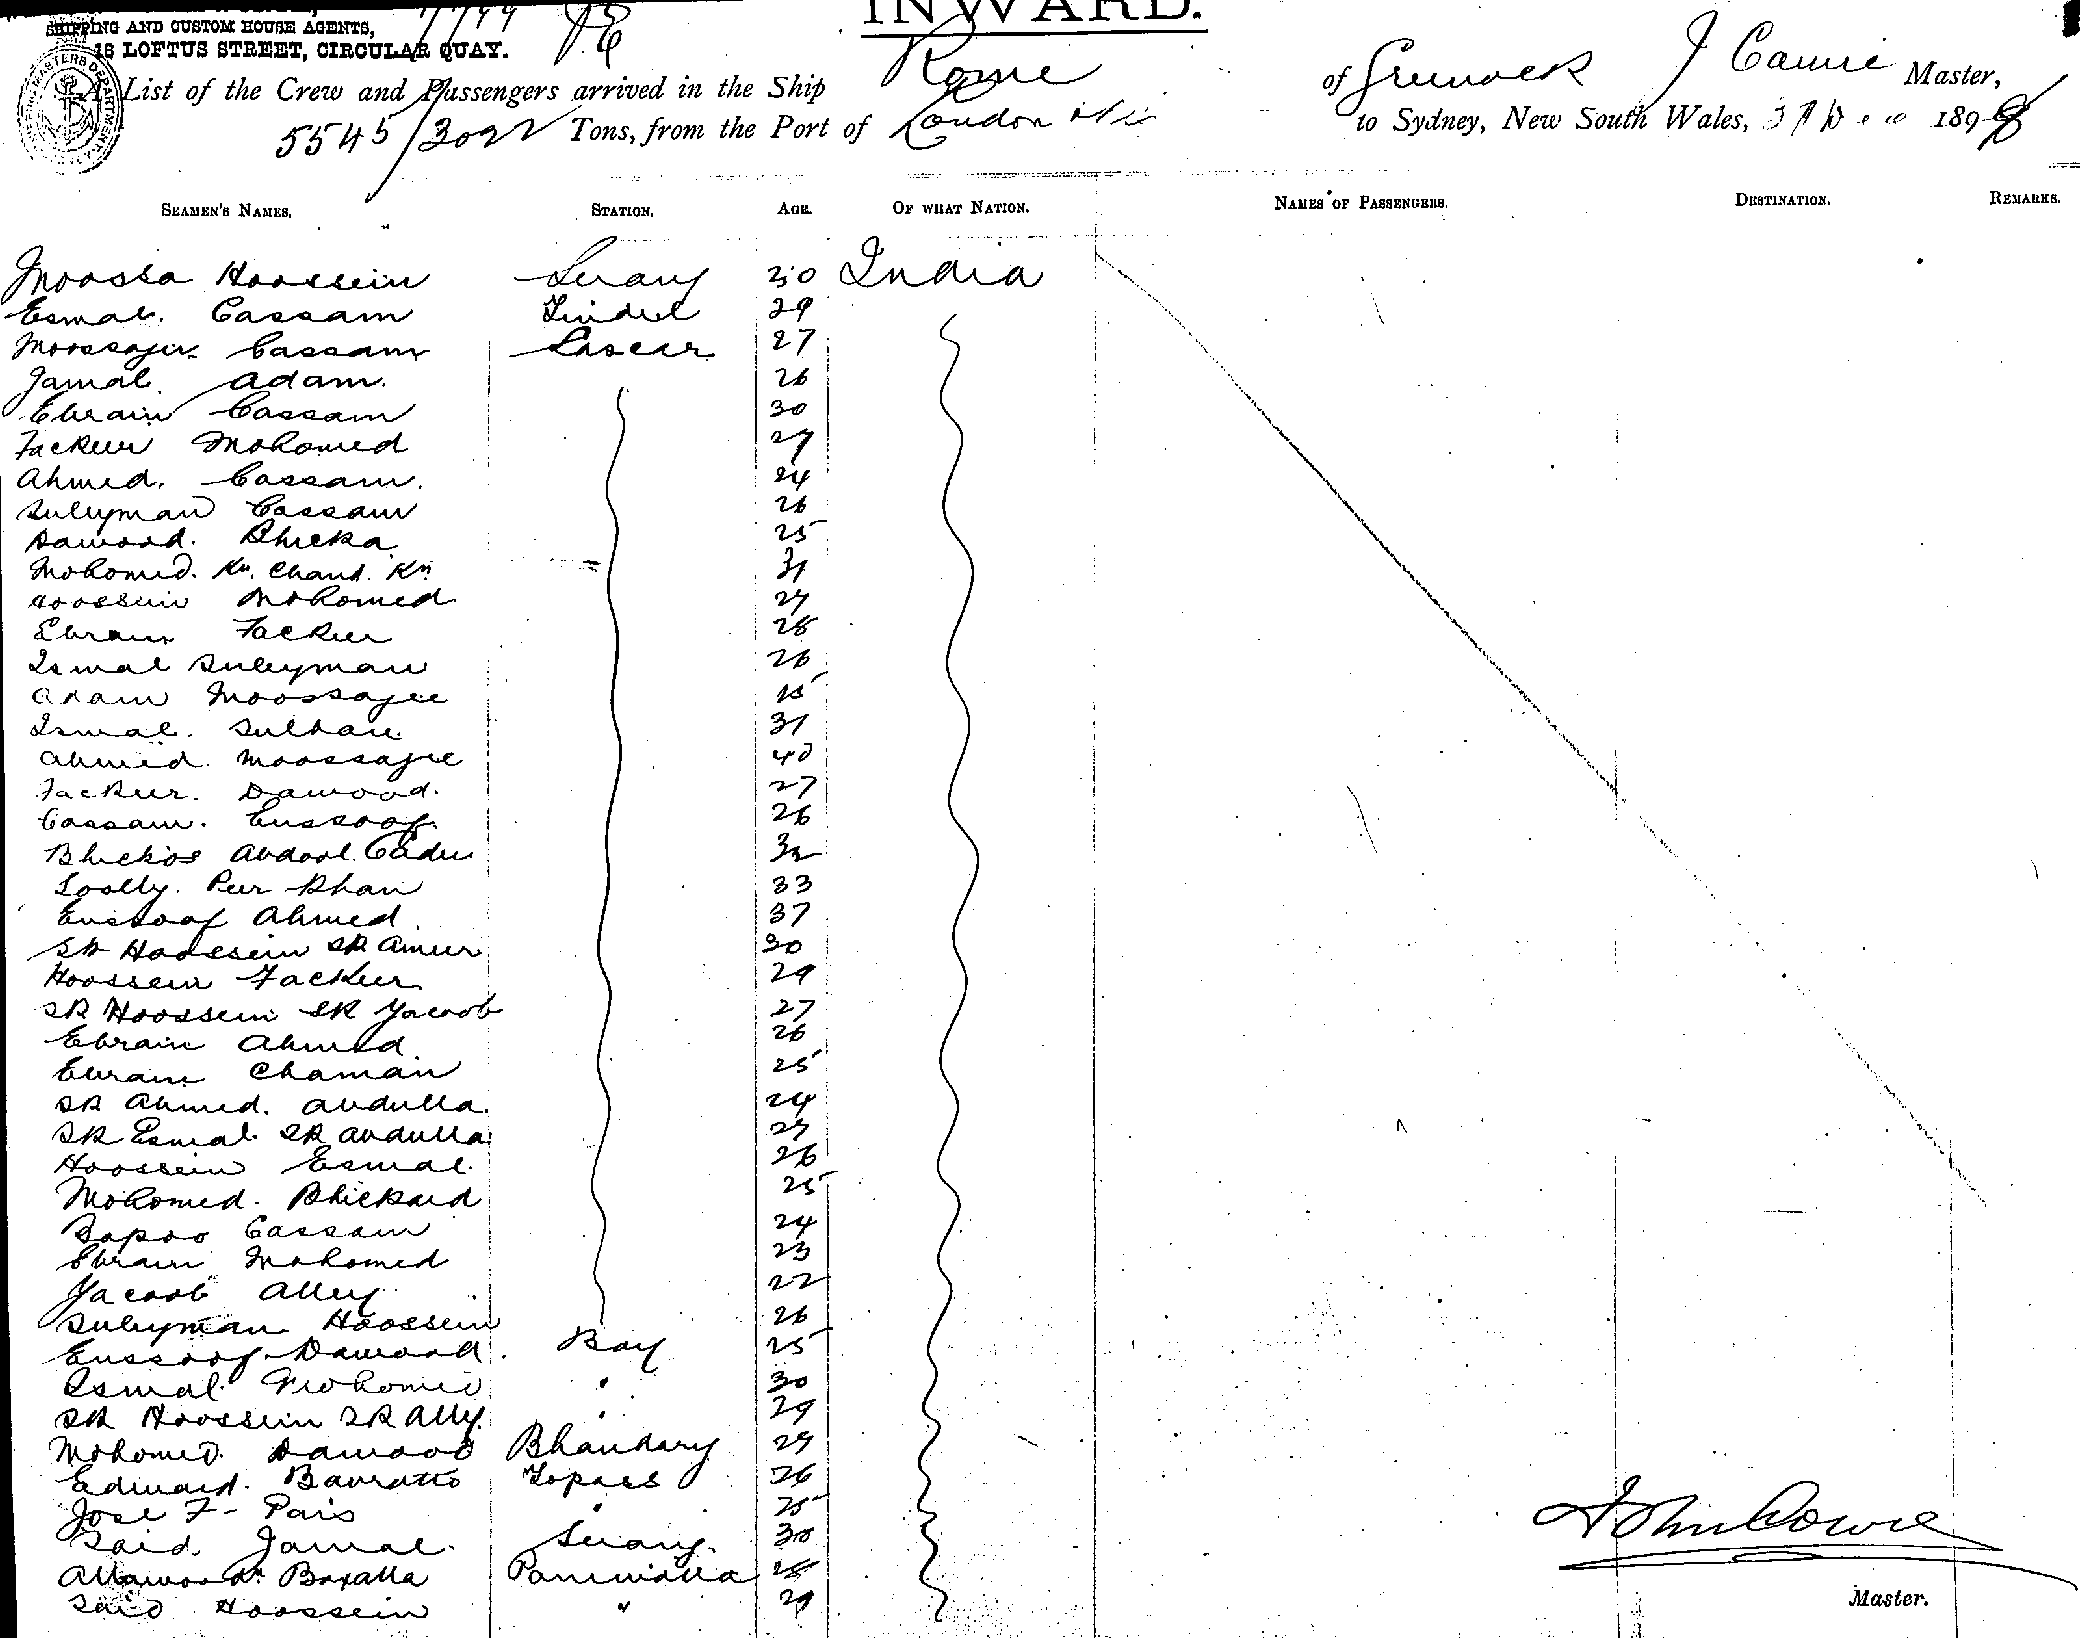 INWARD.
SHIPPING AND CUSTOM HOUSE AGENTS,
16 LOFTUS STREET, CIRCULAR QUAY.
List of the Crew and Passengers arrived in the Ship Rome of Greenock J Cowie Master,
5545/3092 Tons, from the Port of London to Sydney, New South Wales, 189
SEAMEN'S NAMES. STATION. AGE. OF WHAT NATION. NAMES OF PASSENGERS. DESTINATION. REMARKS.
Moossa Hoossein Serang 30 India
Esmal. Cassam Tindel 29
Moossajee Cassam Lascar 27
Jamal. Adam. 26
Ebraim Cassam 30
Fackeer Mohomed 27
Ahmed. Cassam. 24
Suleyman Cassam 26
Dawood. Bhicka 25
Mohomed. Kn. Chand. Kn 31
Hoossein Mohomed 27
Ebram Fackeer 28
Ismal Suleyman 26
Adam Moossajee
Ismal. Sultan 31
Ahmed. Moossajee 40
Fackeer. Dawood. 27
Cassam. Eussoof. 26
Abdool Cader 32
Peer Khan 33
Eussoof Ahmed 37
SK Hoossein SK Ameer 30
Hoossein Fackeer 29
SK Hoossein SK Yacoob 27
Ebraim Ahmed 26
Ebram Chaman 25
SK Ahmed. Abdulla. 24
SK Esmal SK Abdulla 27
Hoossein Esmal. 26
Mohomed. 25
Bapoo Cassam 24
Ebraim Mohomed 23
Yacoob Alley 22
Suleyman Hoossein 26
Eussoof Dawood. Boy 25
Ismal Mohomed " 30
SK Hoossein SK Ally. " 29
Mohomed Dawood Bhandary 29
Edward. Barratto Topass 26
Jose F- Pais " 25
Said. Jamal. Serang. 30
Paniwalla 28
Said Hoossein " 29
John Cowie
Master.